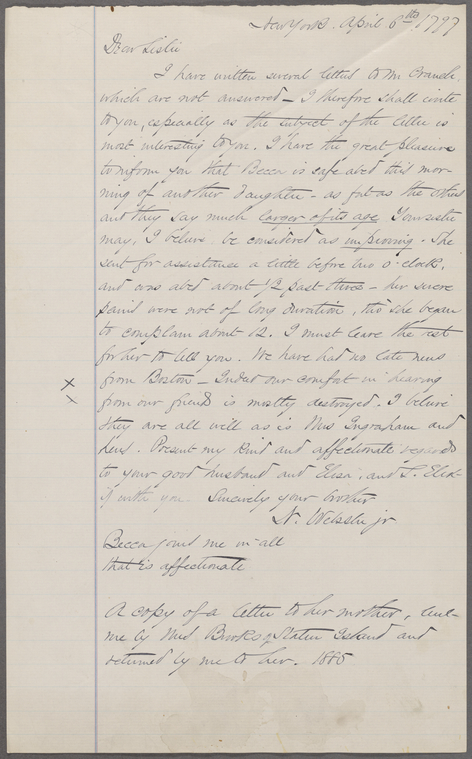 New York. April 6th 1797.
Dear Sister
I have written several letters to Mr Cranch.
which are not answered – I therefore shall write
to you, especially as the subject of the letter is
most interesting to you. I have the great pleasure
to inform you that Becca is safe abed this mor-
ning of another daughter – as fat as the others
and they say much larger of its age. Your sister
may, I believe, be considered as improving. She
sent for assistance a little before two o'clock,
and was abed about 1/2 past three – her severe
pains were not of long duration, tho she began
to complain about 12. I must leave the rest
for her to tell you. We have had no late news
from Boston – Indeed our comfort in hearing
from our friends is mostly destroyed. I believe
they are all well as is Mrs Ingraham and
hers. Present my kind and affectionate regards
to your good husband and Eliza, and
if with you. Sincerely your brother
N. Webster jr
Becca joins me in all
that is affectionate
A copy of a letter to her mother, lent
me by Mrs Brooks of Staten Island and
returned by me to her. 1885